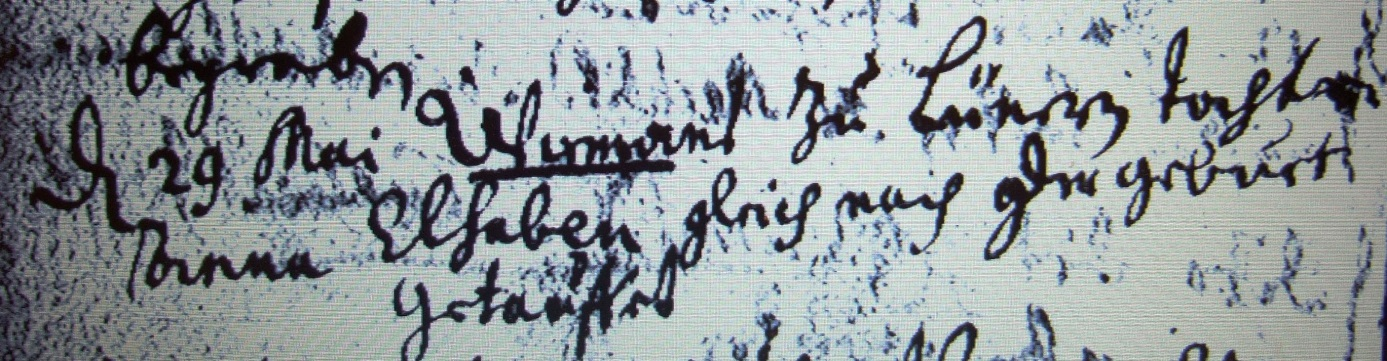 begraben.
D 29 Mai Usumans zu Lünern tochter
Anna Elsaben gleich nach der geburt
getauffet